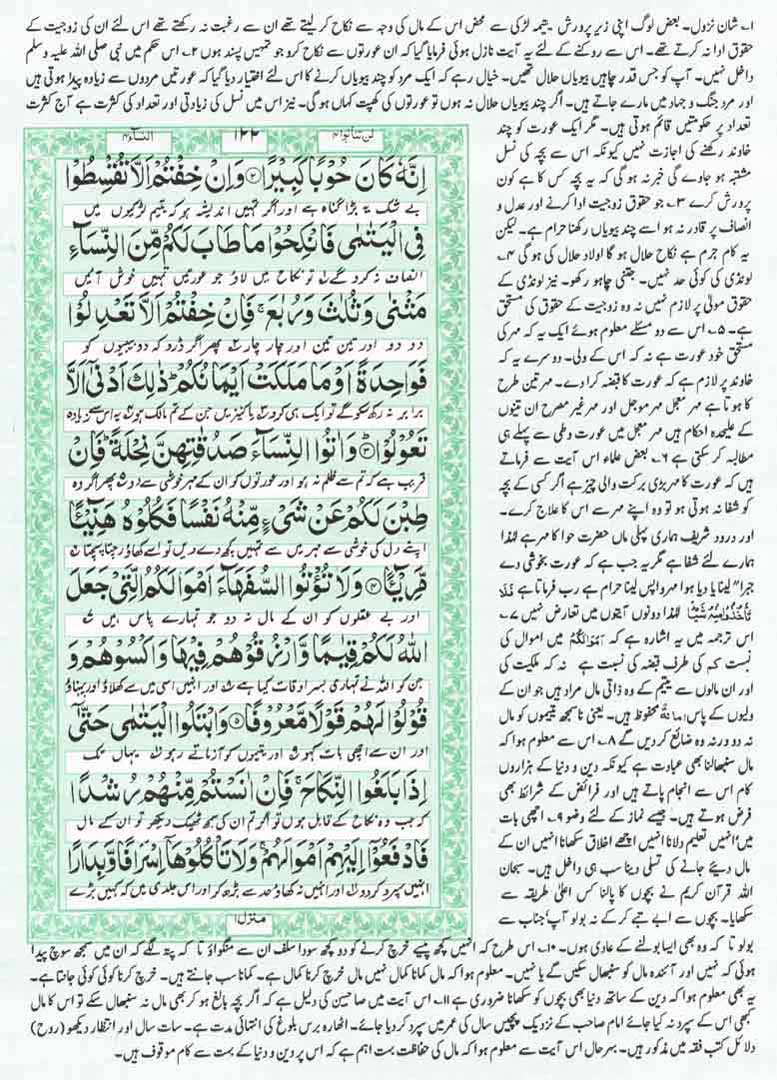 ۱۔ شان نزول۔ بعض لوگ اپنی زیر پرورش یتیمہ لڑکی سے محض اس کے مال کی وجہ سے نکاح کر لیتے تھے ان سے رغبت نہ رکھتے تھے اس لئے ان کی زوجیت کے
حقوق ادا نہ کرتے تھے۔ اس سے روکنے کے لئے یہ آیت نازل ہوئی فرمایا گیا کہ ان عورتوں سے نکاح کرو جو تمہیں پسند ہوں ۲۔ اس حکم میں نبی صلی اللہ علیہ وسلم
داخل نہیں۔ آپ کو جس قدر چاہیں بیویاں حلال تھیں۔ خیال رہے کہ ایک مرد کو چند بیویاں کرنے کا اس لئے اختیار دیا گیا کہ عورتیں مردوں سے زیادہ پیدا ہوتی ہیں
اور مرد جنگ و جہاد میں مارے جاتے ہیں۔ اگر چند بیویاں حلال نہ ہوں تو عورتوں کی کھپت کہاں ہو گی۔ نیز اس میں نسل کی زیادتی اور تعداد کی کثرت ہے آج کثرت
تعداد پر حکومتیں قائم ہوتی ہیں۔ مگر ایک عورت کو چند
خاوند رکھنے کی اجازت نہیں کیونکہ اس سے بچہ کی نسل
مشتبہ ہو جاوے گی خبر نہ ہو گی کہ یہ بچہ کس کا ہے کون
پرورش کرے ۳۔ جو حقوق زوجیت ادا کرنے اور عدل و
انصاف پر قادر نہ ہو اسے چند بیویاں رکھنا حرام ہے۔ لیکن
یہ کام جرم ہے نکاح حلال ہو گا اولاد حلال کی ہو گی ۴۔
لونڈی کی کوئی حد نہیں۔ جتنی چاہو رکھو۔ نیز لونڈی کے
حقوق مولیٰ پر لازم نہیں نہ وہ زوجیت کے حقوق کی مستحق
ہے۔ ۵۔ اس سے دو مسئلے معلوم ہوئے ایک یہ کہ مہر کی
مستحق خود عورت ہے نہ کہ اس کے ولی۔ دوسرے یہ کہ
خاوند پر لازم ہے کہ عورت کا قبضہ کرا دے۔ مہر تین طرح
کا ہوتا ہے مہر معجل مہر موجل اور مہر غیر مصرح ان تینوں
کے علیحدہ احکام ہیں مہر معجل میں عورت وطی سے پہلے ہی
مطالبہ کر سکتی ہے ۶۔ بعض علماء اس آیت سے فرماتے
ہیں کہ عورت کا مہر بڑی برکت والی چیز ہے اگر کسی کے بچہ
کو شفا نہ ہوتی ہو تو وہ اپنے مہر سے اس کا علاج کرے۔
اور درود شریف ہماری پہلی ماں حضرت حوا کا مہر ہے لہٰذا
ہمارے لئے شفا ہے مگر یہ جب ہے کہ عورت بخوشی دے
جبرا" لینا یا دیا ہوا مہر واپس لینا حرام ہے رب فرماتا ہے فَلَا
تَأْخُذُوا مِنْهُ شَيْئًا لہٰذا دونوں آیتوں میں تعارض نہیں ۷۔
اس ترجمہ میں یہ اشارہ ہے کہ اَمْوَالَكُمْ میں اموال کی
نسبت کم کی طرف قبضہ کی نسبت ہے نہ کہ ملکیت کی
اور ان مالوں سے یتیم کے وہ ذاتی مال مراد ہیں جو ان کے
ولیوں کے پاس امانۃً محفوظ ہیں۔ یعنی نا سمجھ یتیموں کو مال
نہ دو ورنہ وہ ضائع کر دیں گے ۸۔ اس سے معلوم ہوا کہ
مال سنبھالنا بھی عبادت ہے کیونکہ دین و دنیا کے ہزاروں
کام اس سے انجام پاتے ہیں اور فرائض کے شرائط بھی
فرض ہوتے ہیں۔ جیسے نماز کے لئے وضو ۹۔ اچھی بات
میں انہیں تعلیم دلانا انہیں اچھے اخلاق سکھانا انہیں ان کے
مال دیئے جانے کی تسلی دینا سب ہی داخل ہیں۔ سبحان
اللہ قرآن کریم نے بچوں کا پالنا کس اعلیٰ طریقہ سے
سکھایا۔ بچوں سے ابے تبے کر کے نہ بولو آپ' جناب سے
النساء ۴
۱۲۲
لن تنالوا ۴
اِنَّهٗ كَانَ حُوْبًا كَبِيْرًا ۲ وَاِنْ خِفْتُمْ اَلَّا تُقْسِطُوْا
بے شک یہ بڑا گناہ ہے اور اگر تمہیں اندیشہ ہو کہ یتیم لڑکیوں میں
فِي الْيَتٰمٰى فَانْكِحُوْا مَا طَابَ لَكُمْ مِّنَ النِّسَآءِ
انصاف نہ کرو گے تو نکاح میں لاؤ جو عورتیں تمہیں خوش آئیں
مَثْنٰى وَثُلٰثَ وَرُبٰعَ فَاِنْ خِفْتُمْ اَلَّا تَعْدِلُوْا
دو دو اور تین تین اور چار چار پھر اگر ڈرو کہ دو بیبیوں کو
فَوَاحِدَةً اَوْ مَا مَلَكَتْ اَيْمَانُكُمْ ذٰلِكَ اَدْنٰٓى اَلَّا
برابر نہ رکھ سکو گے تو ایک ہی کرو یا کنیزیں جن کے تم مالک ہو یہ اس سے زیادہ
تَعُوْلُوْا ۳ وَاٰتُوا النِّسَآءَ صَدُقٰتِهِنَّ نِحْلَةً فَاِنْ
قریب ہے کہ تم سے ظلم نہ ہو اور عورتوں کو ان کے مہر خوشی سے دو پھر اگر وہ
طِبْنَ لَكُمْ عَنْ شَيْءٍ مِّنْهُ نَفْسًا فَكُلُوْهُ هَنِيْٓـًٔا
اپنے دل کی خوشی سے مہر میں سے تمہیں کچھ دے دیں تو اسے کھاؤ رچتا پچتا
مَّرِيْٓـًٔا ۴ وَلَا تُؤْتُوا السُّفَهَآءَ اَمْوَالَكُمُ الَّتِيْ جَعَلَ
اور بے عقلوں کو ان کے مال نہ دو جو تمہارے پاس ہیں
اللّٰهُ لَكُمْ قِيٰمًا وَّارْزُقُوْهُمْ فِيْهَا وَاكْسُوْهُمْ وَ
جن کو اللہ نے تمہاری بسر اوقات کیا ہے اور انہیں اسی میں سے کھلاؤ اور پہناؤ
قُوْلُوْا لَهُمْ قَوْلًا مَّعْرُوْفًا ۵ وَابْتَلُوا الْيَتٰمٰى حَتّٰٓى
اور ان سے اچھی بات کہو اور یتیموں کو آزماتے رہو یہاں تک
اِذَا بَلَغُوا النِّكَاحَ فَاِنْ اٰنَسْتُمْ مِّنْهُمْ رُشْدًا
کہ جب وہ نکاح کے قابل ہوں تو اگر تم ان کی سمجھ ٹھیک دیکھو تو ان کے مال
فَادْفَعُوْٓا اِلَيْهِمْ اَمْوَالَهُمْ وَلَا تَاْكُلُوْهَآ اِسْرَافًا وَّبِدَارًا
انہیں سپرد کر دو اور انہیں نہ کھاؤ حد سے بڑھ کر اور اس جلدی میں کہ کہیں بڑے
منزل ۱
بولو تا کہ وہ بھی ایسا بولنے کے عادی ہوں۔ ۱۰۔ اس طرح کہ انہیں کچھ پیسے خرچ کرنے کو دو کچھ سودا سلف ان سے منگواؤ تا کہ پتہ لگے کہ ان میں سمجھ سوچ پیدا
ہوئی کہ نہیں اور آئندہ مال کو سنبھال سکیں گے یا نہیں۔ معلوم ہوا کہ مال کمانا کمال نہیں مال خرچ کرنا کمال ہے۔ کمانا سب جانتے ہیں۔ خرچ کرنا کوئی کوئی جانتا ہے۔
یہ بھی معلوم ہوا کہ دین کے ساتھ دنیا بھی بچوں کو سکھانا ضروری ہے ۱۱۔ اس آیت میں صاحبین کی دلیل ہے کہ اگر بچہ بالغ ہو کر بھی مال نہ سنبھال سکے تو اس کا مال
کبھی اس کے سپرد نہ کیا جائے امام صاحب کے نزدیک پچیس سال کی عمر میں سپرد کر دیا جائے۔ اٹھارہ برس بلوغ کی انتہائی مدت ہے۔ سات سال اور انتظار دیکھو (روح)
دلائل کتب فقہ میں مذکور ہیں۔ بہرحال اس آیت سے معلوم ہوا کہ مال کی حفاظت بہت اہم ہے کہ اس پر دین و دنیا کے بہت سے کام موقوف ہیں۔